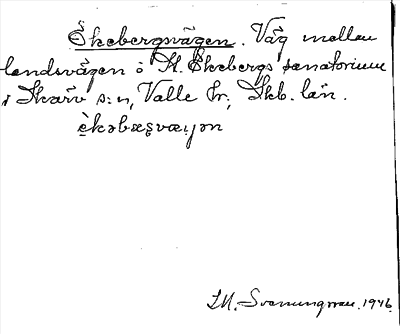 Ekebergsvägen. Väg mellan
landsvägen o St. Ekebergs sanatorium
i Skärv s:n, Valle hr, Skb. län.
 èkəbæʂvæɥən
I.M. Svenungsson. 1946.